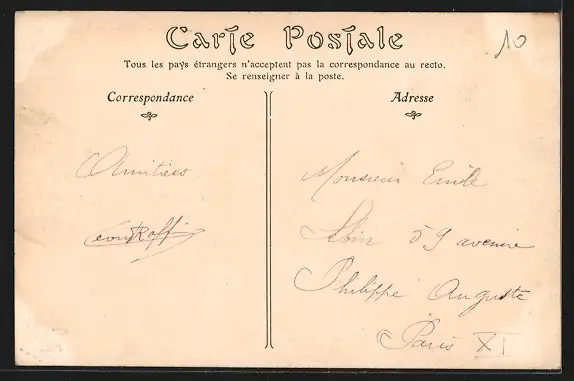 Carte Postale
10
Tous les pays étrangers n'acceptent pas la correspondance au recto.
Se renseigner à la poste.
Correspondance
Adresse
Amitiés
Monsieur Emile
59 avenue
Philippe Auguste
Paris XI